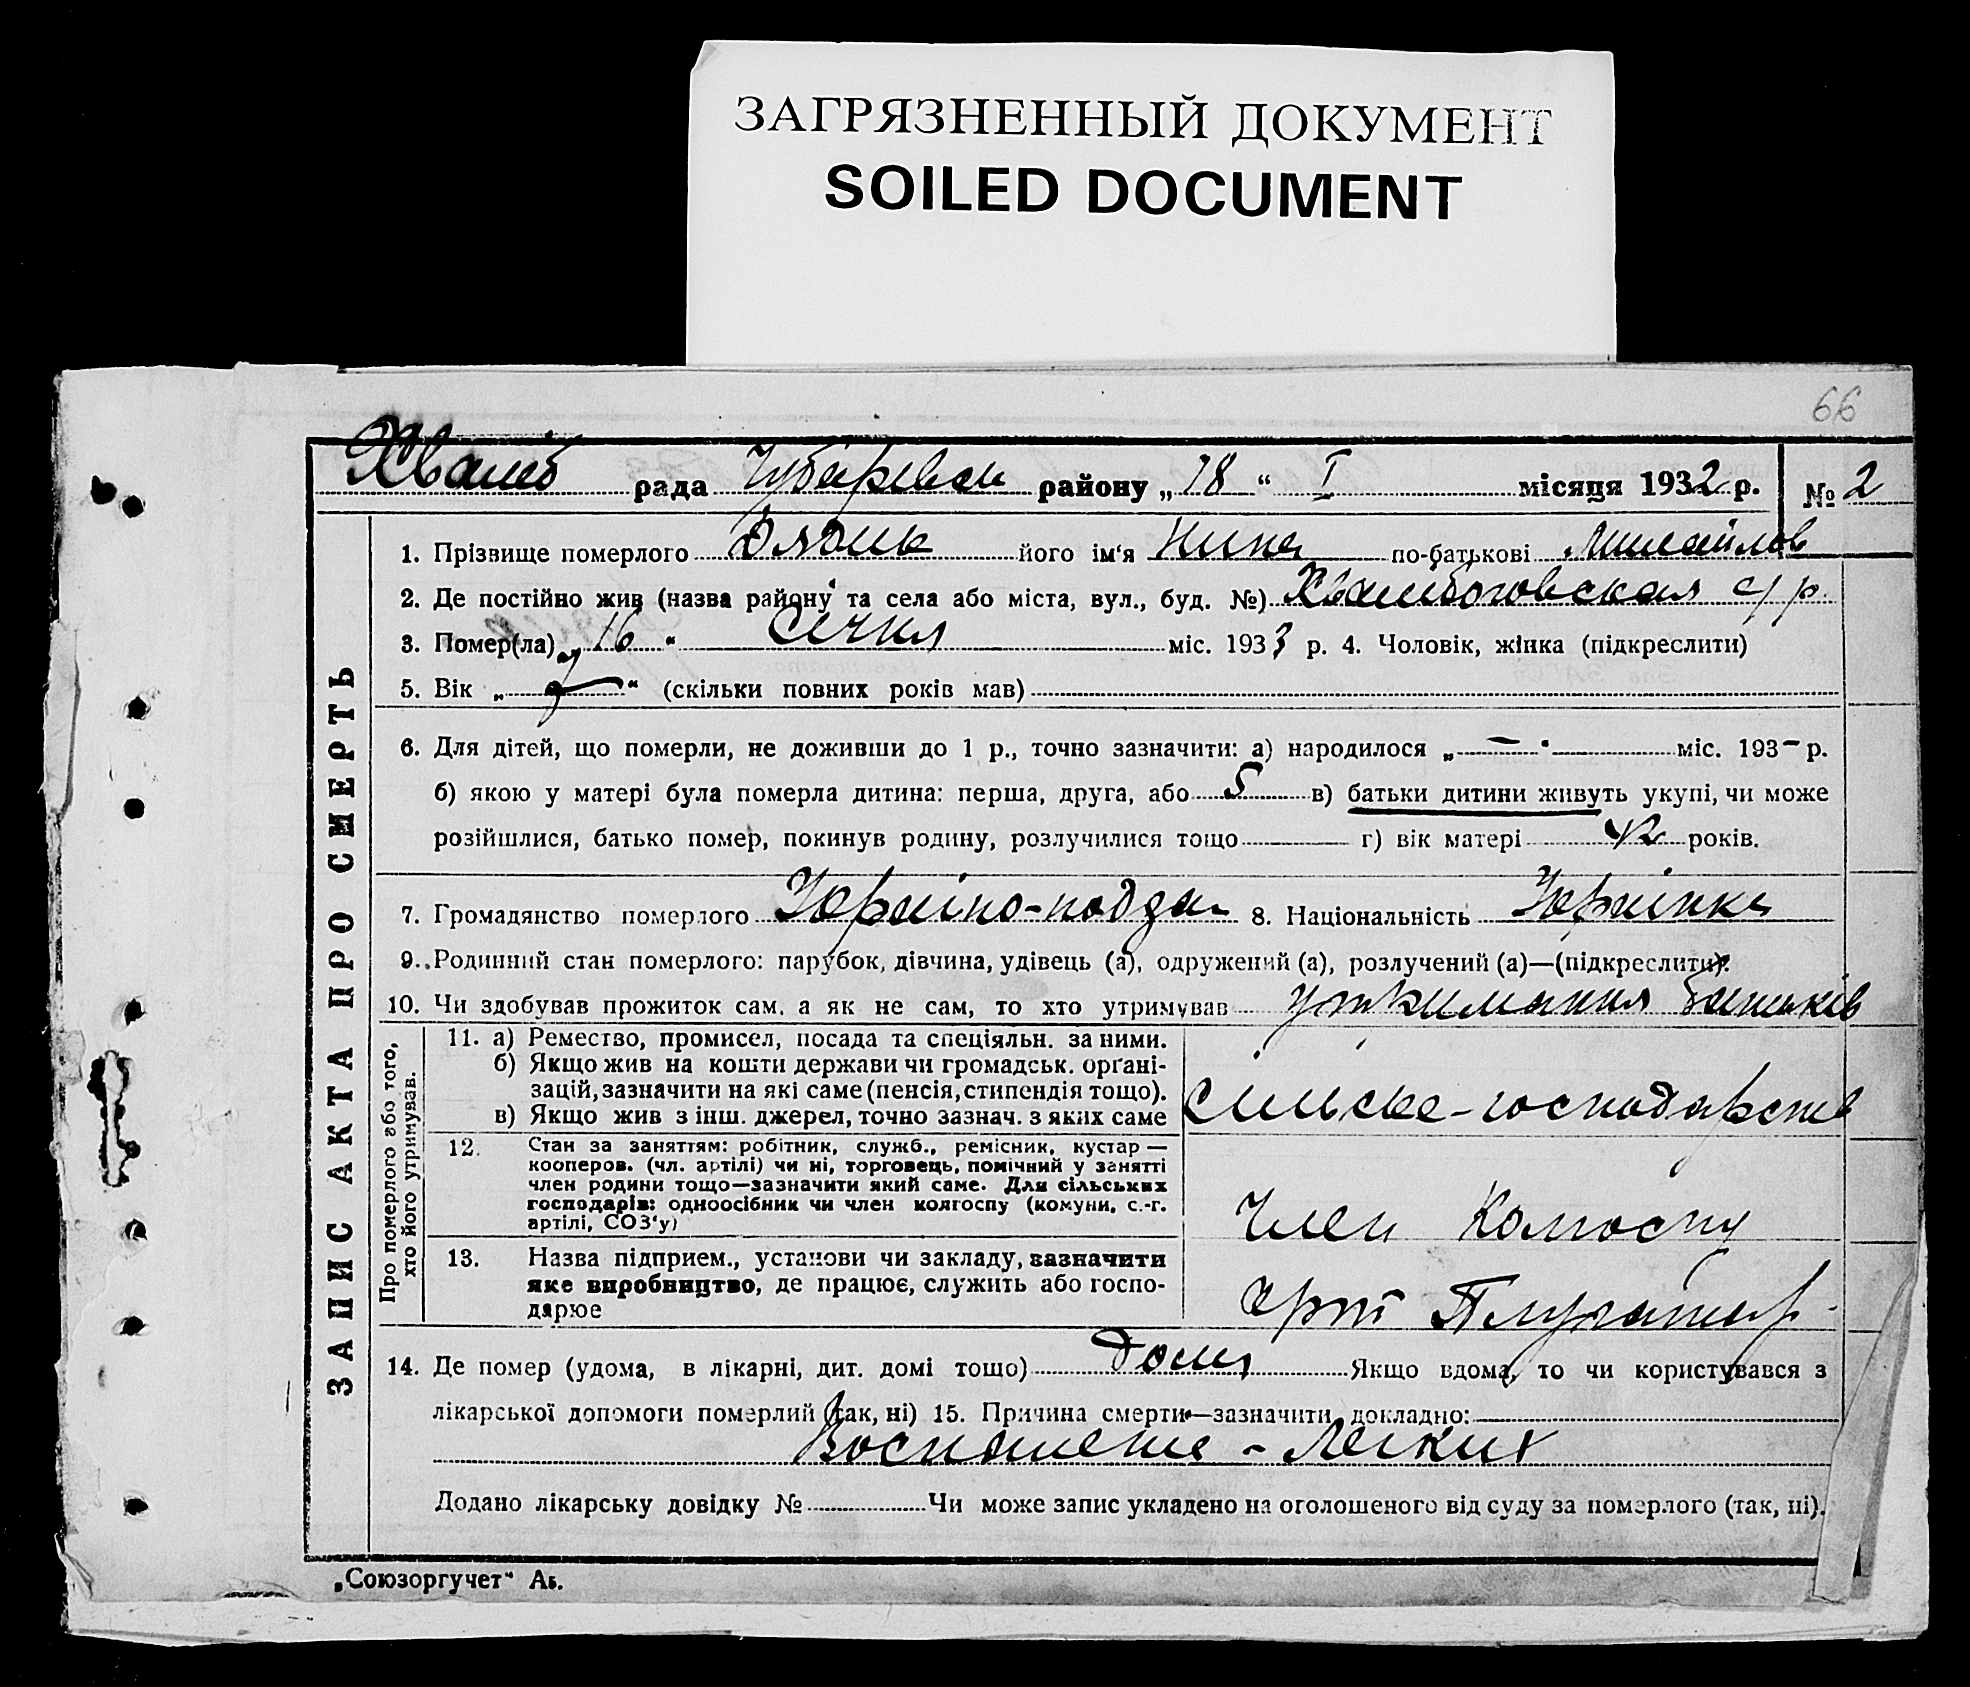 ЗАГРЯЗНЕННЫЙ ДОКУМЕНТ
SOILED DOCUMENT
66
рада Чубаревск району „18“ I місяця 1932 р. № 2
ЗАПИС АКТА ПРО СМЕРТЬ
1. Прізвище померлого його ім‘я Нина по-батькові Михайлов
2. Де постійно жив (назва району та села або міста, вул., буд. №) с/р.
3. Помер(ла) „16“ Січня міс. 1933 р. 4. Чоловік, жінка (підкреслити)
5. Вік „ “ (скільки повних років мав)
6. Для дітей, що померли, не доживши до 1 р., точно зазначити: а) народилося „—“ міс. 193– р.
б) якою у матері була померла дитина: перша, друга, або 5 в) батьки дитини живуть укупі, чи може
розійшлися, батько помер, покинув родину, розлучилися тощо г) вік матері 42 років.
7. Громадянство померлого 8. Національність Українка
9. Родинний стан померлого: парубок, дівчина, удівець (а), одружений (а), розлучений (а)—(підкреслити).
10. Чи здобував прожиток сам, а як не сам, то хто утримував утримання батьків
Про померлого або того, хто його утримував.
11. а) Ремество, промисел, посада та спеціяльн. за ними.
б) Якщо жив на кошти держави чи громадськ. орґані-
зацій, зазначити на які саме (пенсія, стипендія тощо).
в) Якщо жив з інш. джерел, точно зазнач. з яких саме
сільське-господарств
12. Стан за заняттям: робітник, служб., ремісник, кустар —
кооперов. (чл. артілі) чи ні, торговець, помічний у занятті
член родини тощо—зазначити який саме. Для сільських
господарів: одноосібник чи член колгоспу (комуни, с.-г.
артілі, СОЗ‘у)
Член Колгоспу
13. Назва підприєм., установи чи закладу, зазначити
яке виробництво, де працює, служить або госпо-
дарює
Плугатар
14. Де помер (удома, в лікарні, дит. домі тощо) Дома Якщо вдома, то чи користувався з
лікарської допомоги померлий (так, ні) 15. Причина смерти—зазначити докладно:
Воспаление - Легких
Додано лікарську довідку № Чи може запис укладено на оголошеного від суду за померлого (так, ні).
„Союзоргучет“ Аб.